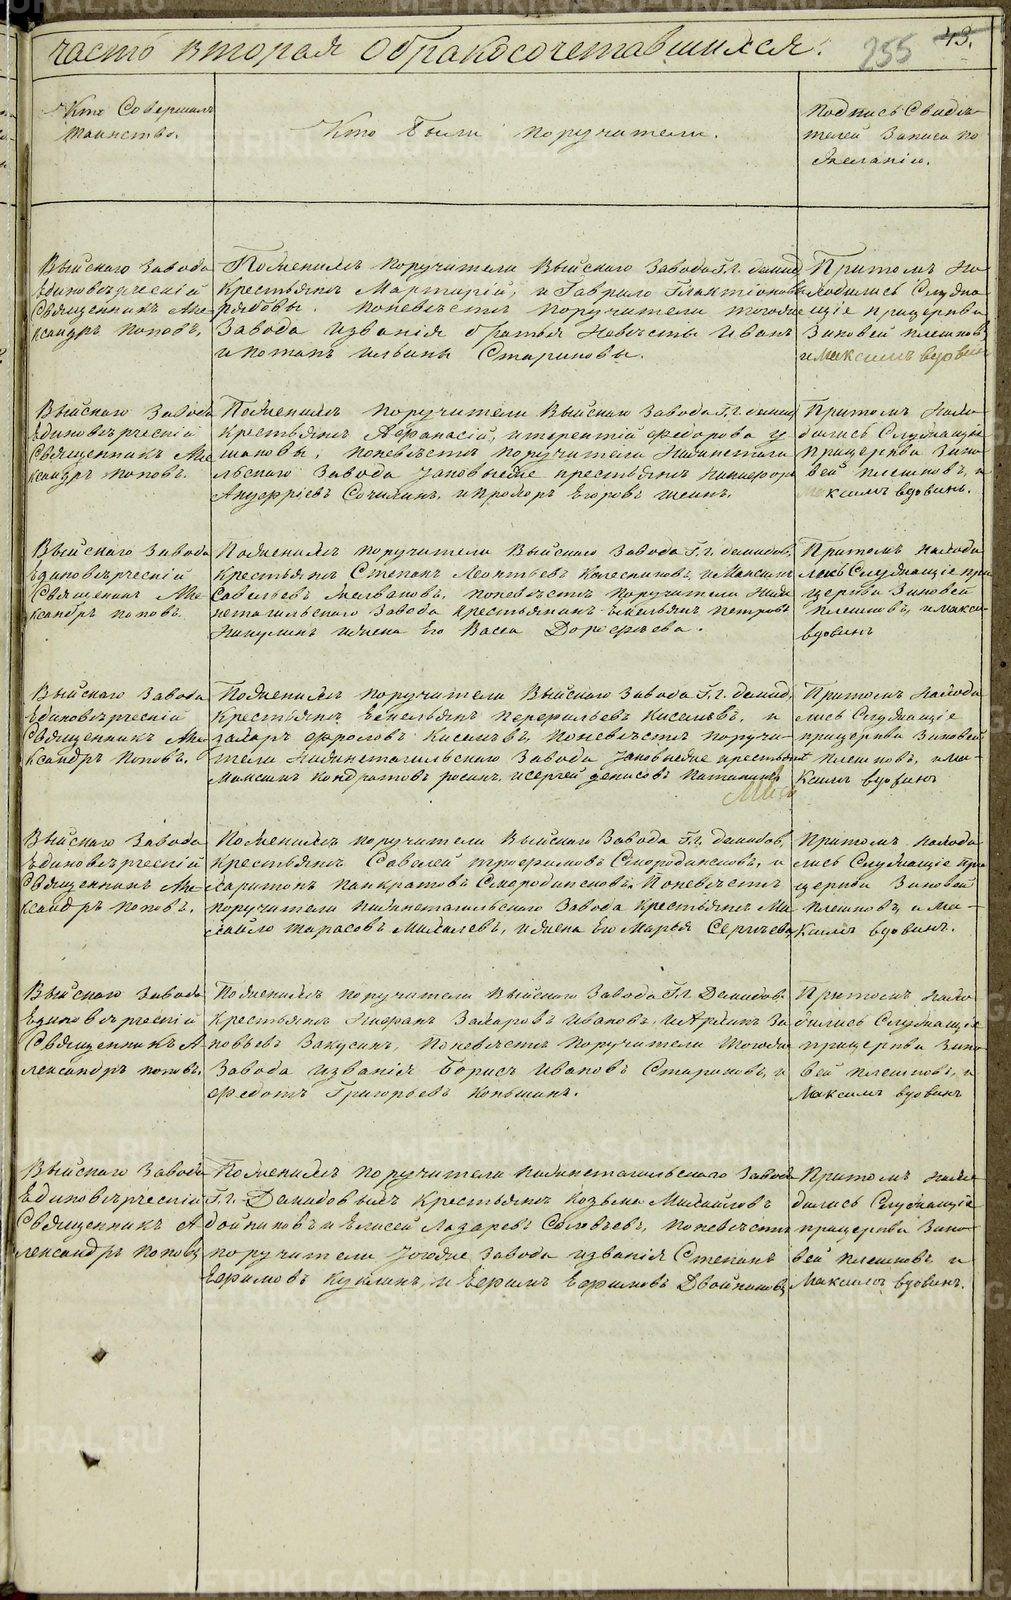 часть вторая обракосочетавшихся.
255
43.
Кто Совершалъ
таинство.
Кто были поручители.
Подпись Свидѣ-
телей Записи по
Желанію.
Выйскаго Завода
Единовѣрческій
Священникъ Але
ксандръ Поповъ.
Поженихѣ поручители Выйскаго Завода Г.г. демид
крестьяне Мартирій, и Гаврило Галактіоновы
Рябовы. Поневѣстѣ поручители тогоже
Завода извѣстія братья Невѣсты Иванъ
и Потапъ Ильины Стариковы.
Притомъ На
ходились Служа
щіе прицеркви
Зиновей Плешковъ
и Максимъ вдовинъ
Выйскаго Завода
Единовѣрческій
Священникъ Але
ксандръ поповъ.
Поженихѣ поручители Выйскаго Завода Г.г. демид
крестьяне Афанасій, итерентій Федоровы у
шаковы, поневѣстѣ поручители Нижнетаги
льскаго Завода крестьяне Никифоръ
Сочилинъ, и Прохоръ Егоровъ
Притомъ Нахо
дились Служащіе
прицеркви Зино
вей Плешковъ, и
Максимъ вдовинъ.
Выйскаго Завода
Единовѣрческій
Священникъ Але
ксандръ поповъ.
Поженихѣ поручители Выйскаго Завода Г.г. демидов,
крестьяне Степанъ Леонтьевъ Колесниковъ, и Максимъ
Савельевъ поневѣстѣ поручители Ниж
нетагильскаго Завода крестьянинъ Емельянъ Петровъ
Никулинъ ижена Его Васса Дорофѣева.
Притомъ находи
лись Служащіе при
церкви Зиновей
Плешковъ, и макси
вдовинъ
Выйскаго Завода
Единовѣрческій
Священникъ Але
ксандръ Поповъ.
Поженихѣ поручители Выйскаго Завода Г.г. демид,
крестьяне Емельянъ Перфильевъ Киселевъ, и
Захаръ Фроловъ Киселевъ, поневѣстѣ поручи-
тели Нижнетагильскаго Завода крестьяне
Максимъ Кондратовъ и Сергей денисовъ
Притомъ Находи
лись Служащіе
прицеркви Зиновей
Плешковъ, и ма
ксимъ вдовинъ
Выйскаго Завода
Единовѣрческій
Священникъ Але
ксандръ поповъ.
Поженихѣ поручители Выйскаго Завода Г.г. демидов,
крестьяне Савелей трофимовъ Смородинсковъ, и
Харитонъ Панкратовъ Смородинсковъ, Поневѣстѣ
поручители Нижнетагильскаго Завода крестьяне Ми
хайло тарасовъ Михалевъ, ижена Его Марья Сергѣева,
Притомъ Находи
лись Служащіе При
церкви Зиновей
Плешковъ, и Ма-
ксимъ вдовинъ.
Выйскаго Завода
Единовѣрческій
Священникъ А
лександръ поповъ.
Поженихѣ поручители Выйскаго Завода Г.г. Демидов.
крестьяне Захаровъ Ивановъ, и Архипъ За
Закусинъ, поневѣстѣ поручители тогоже
Завода Борисъ Ивановъ Стариковъ, и
Федотъ Григорьевъ Коньшинъ.
Притомъ Нахо
дились Служащіе
прицеркви Зино
вей Плешковъ, и
Максимъ вдовинъ
Выйскаго Завода
Единовѣрческій
Священникъ А
лександръ Поповъ
Поженихѣ поручители Нижнетагильскаго Завода
Г.г. Демидовыхъ крестьяне Козьма Михайловъ
двойниковъ и Елисей Лазаревъ Соловьевъ, поневѣстѣ
поручители Завода Степанъ
Ефимовъ и Ефимъ Ефимовъ Двойниковъ
Притомъ Нахо
дились Служащіе
прицеркви Зино-
вей Плешковъ и
Максимъ вдовинъ.